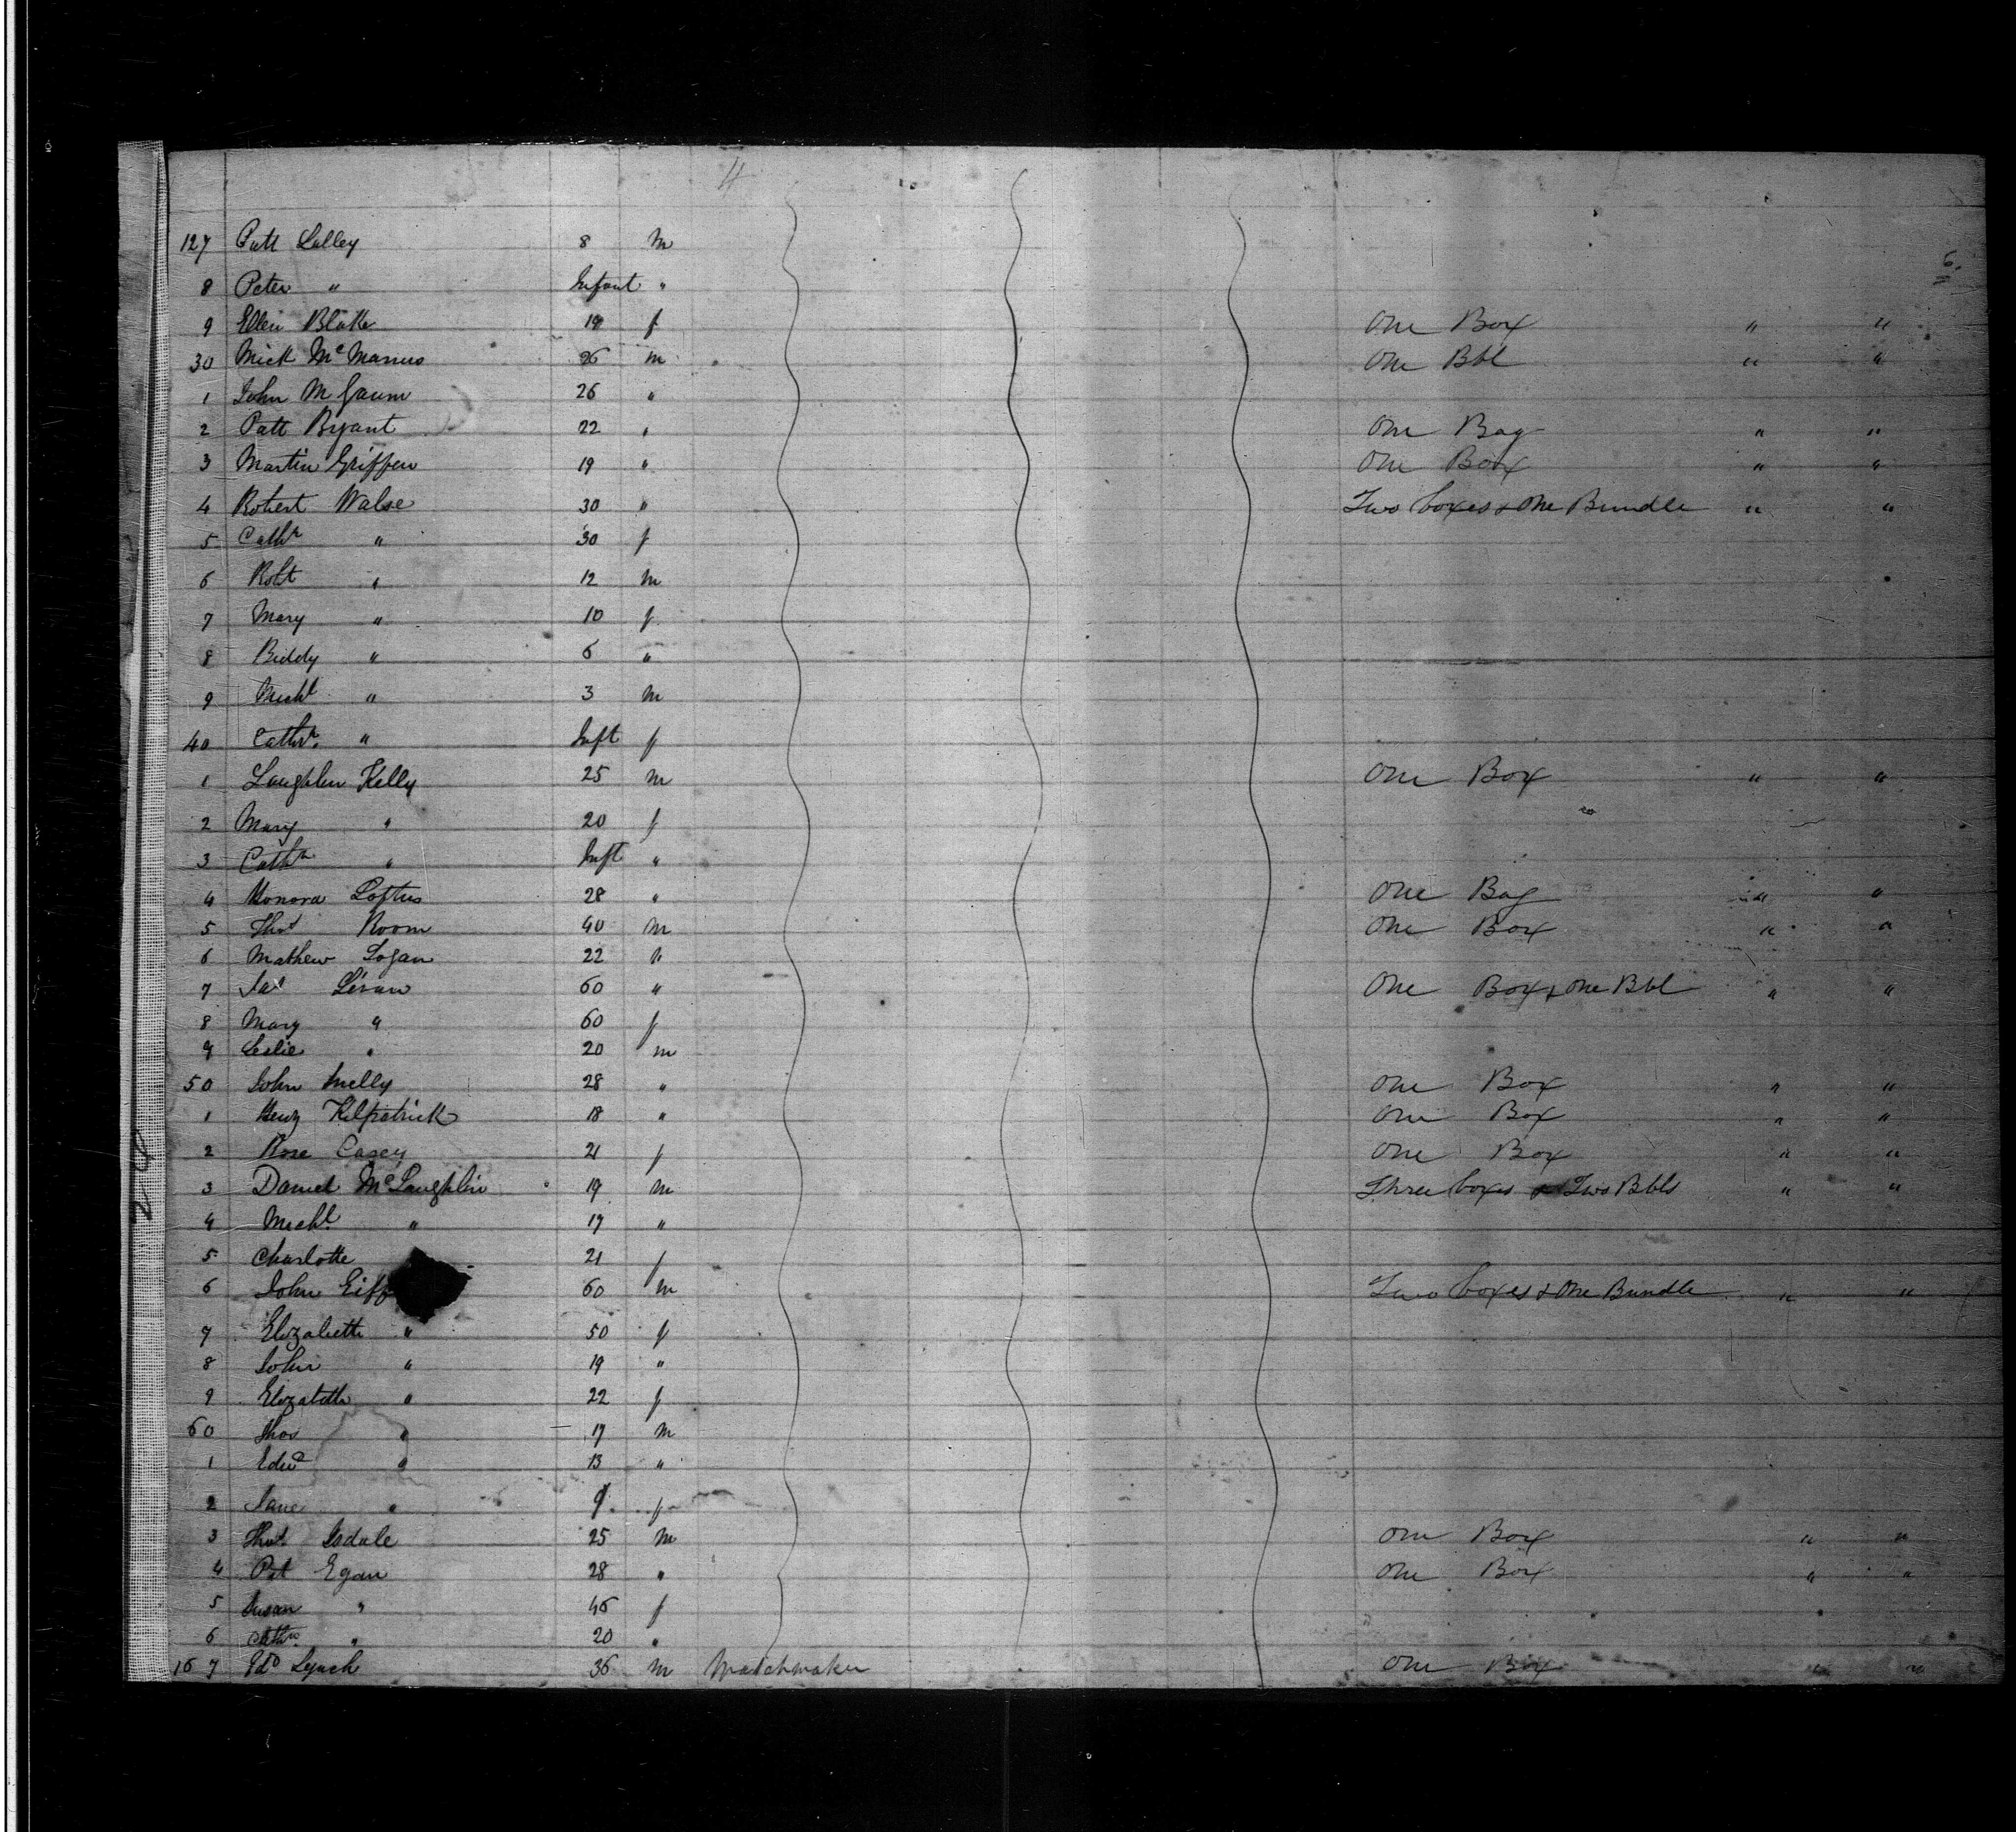 4
6.
127 Patt Lalley 8 m
8 Peter " Infant "
9 Ellen Blake 19 f One Box " "
30 Mick McManus 26 m One Bbl " "
1 John M Gaum 26 "
2 Patt Bryant 22 " One Bag " "
3 Martin Griffen 19 " One Box " "
4 Robert Walse 30 " Two boxes & One Bundle " "
5 Cathn " 30 f
6 Robt " 12 m
7 Mary " 10 f
8 Biddy " 6 "
9 Michl " 3 m
40 Cathn " Inft f
1 Laughlin Kelly 25 m One Box " "
2 Mary " 20 f
3 Cathn " Inft "
4 Honora Loftus 28 " One Bag " "
5 Thos Room 40 m One Box " "
6 Mathew Logan 22 "
7 Jas 60 " One Box & One Bbl " "
8 Mary " 60 f
9 Leslie " 20 m
50 John Melly 28 " One Box " "
1 Henry Kilpatrick 18 " One Box " "
2 Rose Casey 21 f One Box " "
3 Daniel McLaughlin 19 m Three boxes & Two Bbls " "
4 Michl " 17 "
5 Charlotte 21 f
6 John Eiff 60 m Two boxes & One Bundle " "
7 Elizabeth " 50 f
8 John " 19 "
9 Elizabeth " 22 f
60 Thos " 17 m
1 Edwd " 13 "
2 Jane " 9 f
3 Thos Isdale 25 m One Box " "
4 Pat Egan 28 " One Box " "
5 Susan " 46 f
6 Cathn " 20 "
167 Edd Lynch 36 m Watchmaker One Box " "